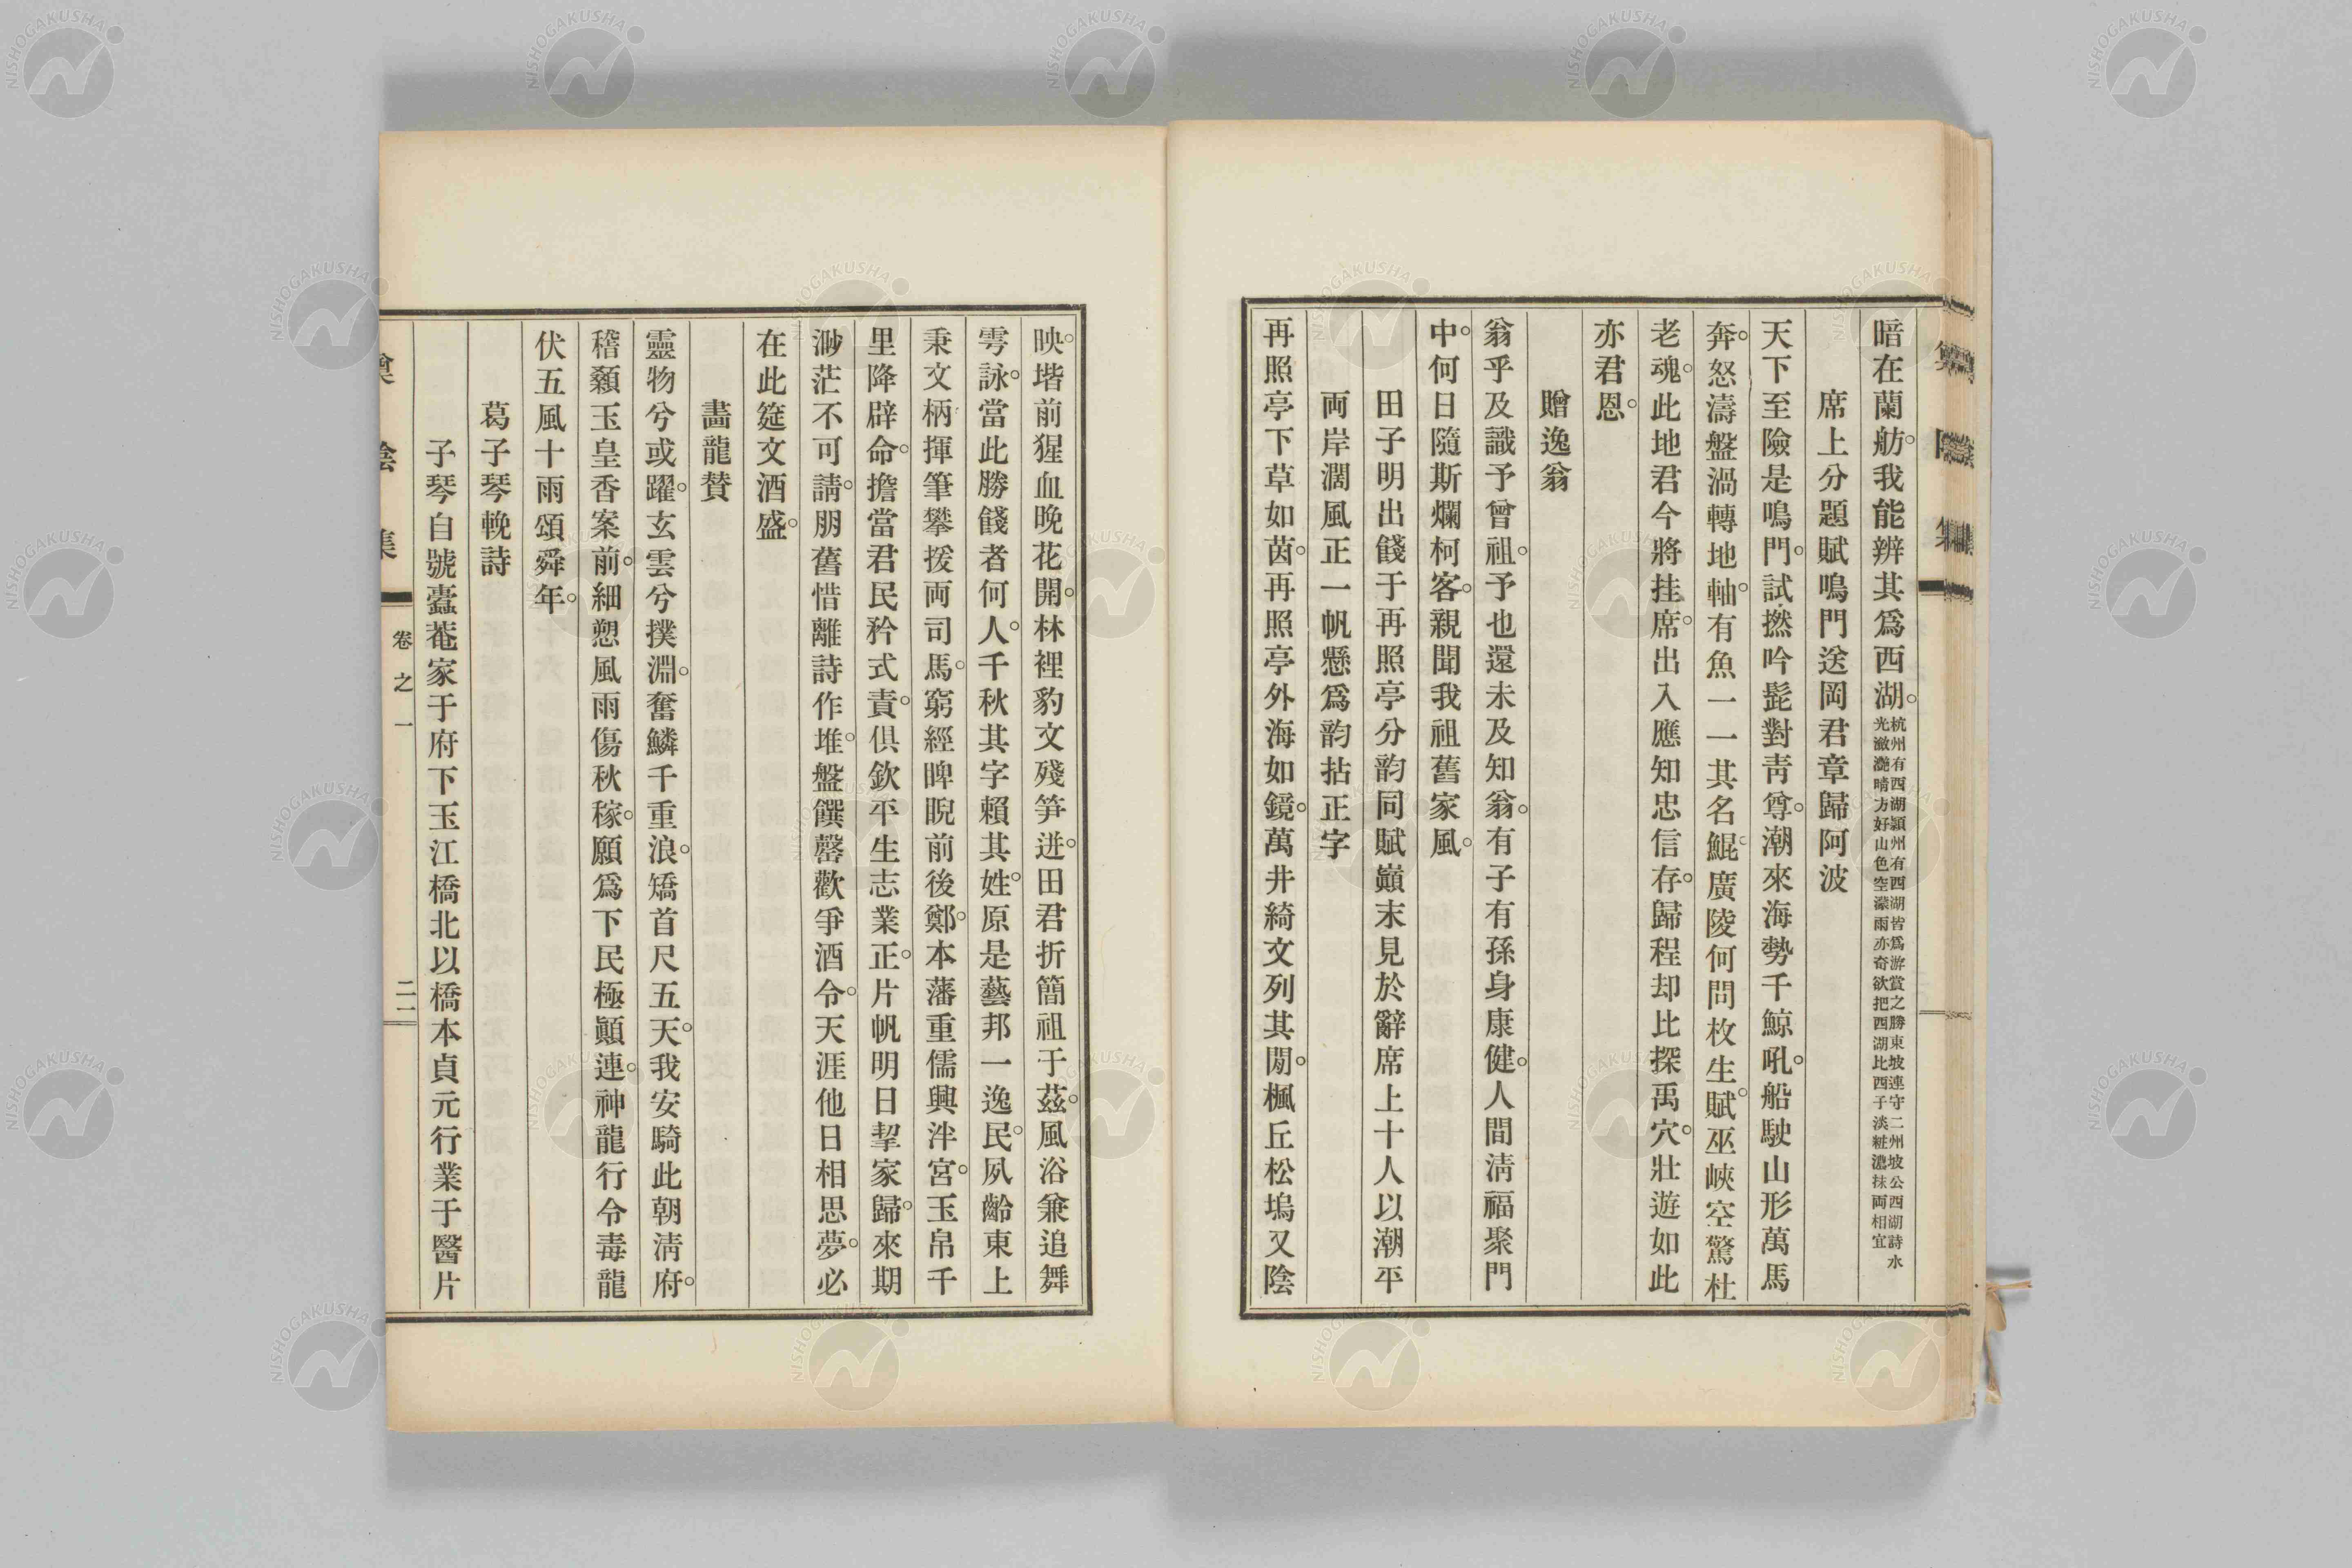 暗在蘭舫。我能辨其爲西湖。杭州有西湖潁州有西湖皆爲游賞之勝東坡連守二州坡公西湖詩水
光瀲灔晴方好山色空濛雨亦奇欲把西湖比西子淡粧濃抹両相宜
席上分題賦鳴門送岡君章歸阿波
天下至險是鳴門。試撚吟髭對靑尊。潮來海勢千鯨吼。船駛山形萬馬
奔。怒濤盤渦轉地軸。有魚一一其名鯤。廣陵何問枚生賦。巫峽空驚杜
老魂。此地君今將挂席。出入應知忠信存。歸程却比探禹穴。壯遊如此
亦君恩。
贈逸翁
翁乎及識予曾祖。予也還未及知翁。有子有孫身康健。人間淸福聚門
中。何日隨斯爛柯客。親聞我祖舊家風。
田子明出餞于再照亭分韵同賦巓末見於辭席上十人以潮平
両岸濶風正一帆懸爲韵拈正字
再照亭下草如茵。再照亭外海如鏡。萬井綺文列其閒。楓丘松塢又陰
映。堦前猩血晚花開。林裡豹文殘笋迸。田君折簡祖于茲。風浴兼追舞
雩詠。當此勝餞者何人。千秋其字賴其姓。原是藝邦一逸民。夙齡東上
秉文柄揮筆攀援両司馬。窮經睥睨前後鄭。本藩重儒興泮宮。玉帛千
里降辟命。擔當君民矜式責。俱欽平生志業正。片帆明日挈家歸。來期
渺茫不可請。朋舊惜離詩作堆。盤饌罄歡爭酒令。天涯他日相思夢。必
在此筵文酒盛。
畵龍賛
靈物兮或躍。玄雲兮撲淵。奮鱗千重浪。矯首尺五天。我安騎此朝淸府。
稽顙玉皇香案前。細愬風雨傷秋稼。願爲下民極顚連。神龍行令毒龍
伏五風十雨頌舜年。
葛子琴輓詩
子琴自號蠹菴家于府下玉江橋北以橋本貞元行業于醫片
卷之一
二一